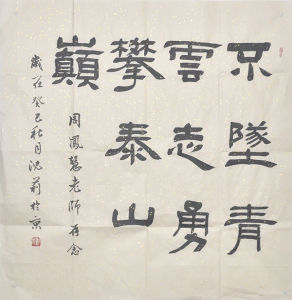 不墜青
雲志勇
攀泰山
巔
周鳳慧老師存念
歲在癸巳秋月沈莉於京